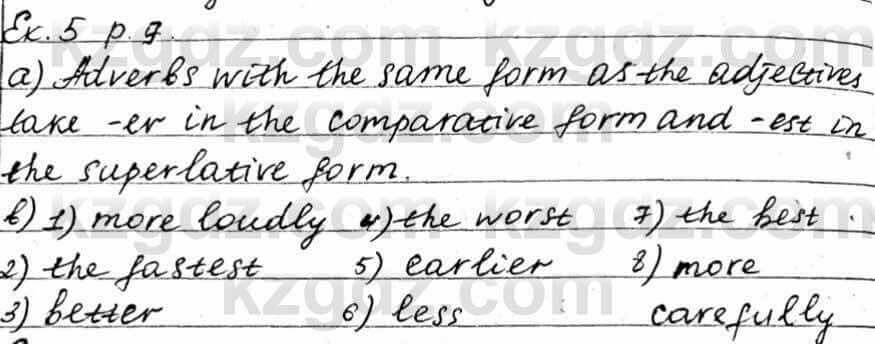 Ex. 5 p. 9.
a) Adverbs with the same form as the adjectives
take -er in the comparative form and -est in
the superlative form.
b) 1) more loudly 4) the worst 7) the best.
2) the fastest 5) earlier 8) more
3) better 6) less carefully
kzgdz.com kzgdz.com kzgdz.com
kzgdz.com kzgdz.com kzgdz.com
kzgdz.com kzgdz.com kzgdz.com
kzgdz.com kzgdz.com